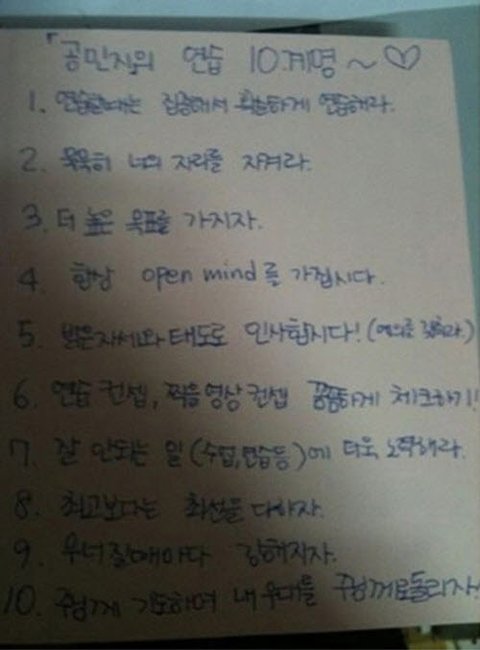 「공민지」의 연습 10계명~♡
1. 연습할때는 집중해서 확실하게 연습해라.
2. 묵묵히 너의 자리를 지켜라.
3. 더 높은 목표를 가지자.
4 항상 open mind를 가집시다.
5. 바른자세와 태도로 인사합시다! (예의를 갖춰라.)
6. 연습 컨셉, 찍을영상컨셉 꼼꼼하게 체크하기!
7. 잘 안되는 일 (수업,연습등)에 더욱 노력해라.
8. 최고보다는 최선을 다하자.
9. 무너질때마다 강해지자.
10. 주님께 기도하며 내 무대를 주님께로돌리자!